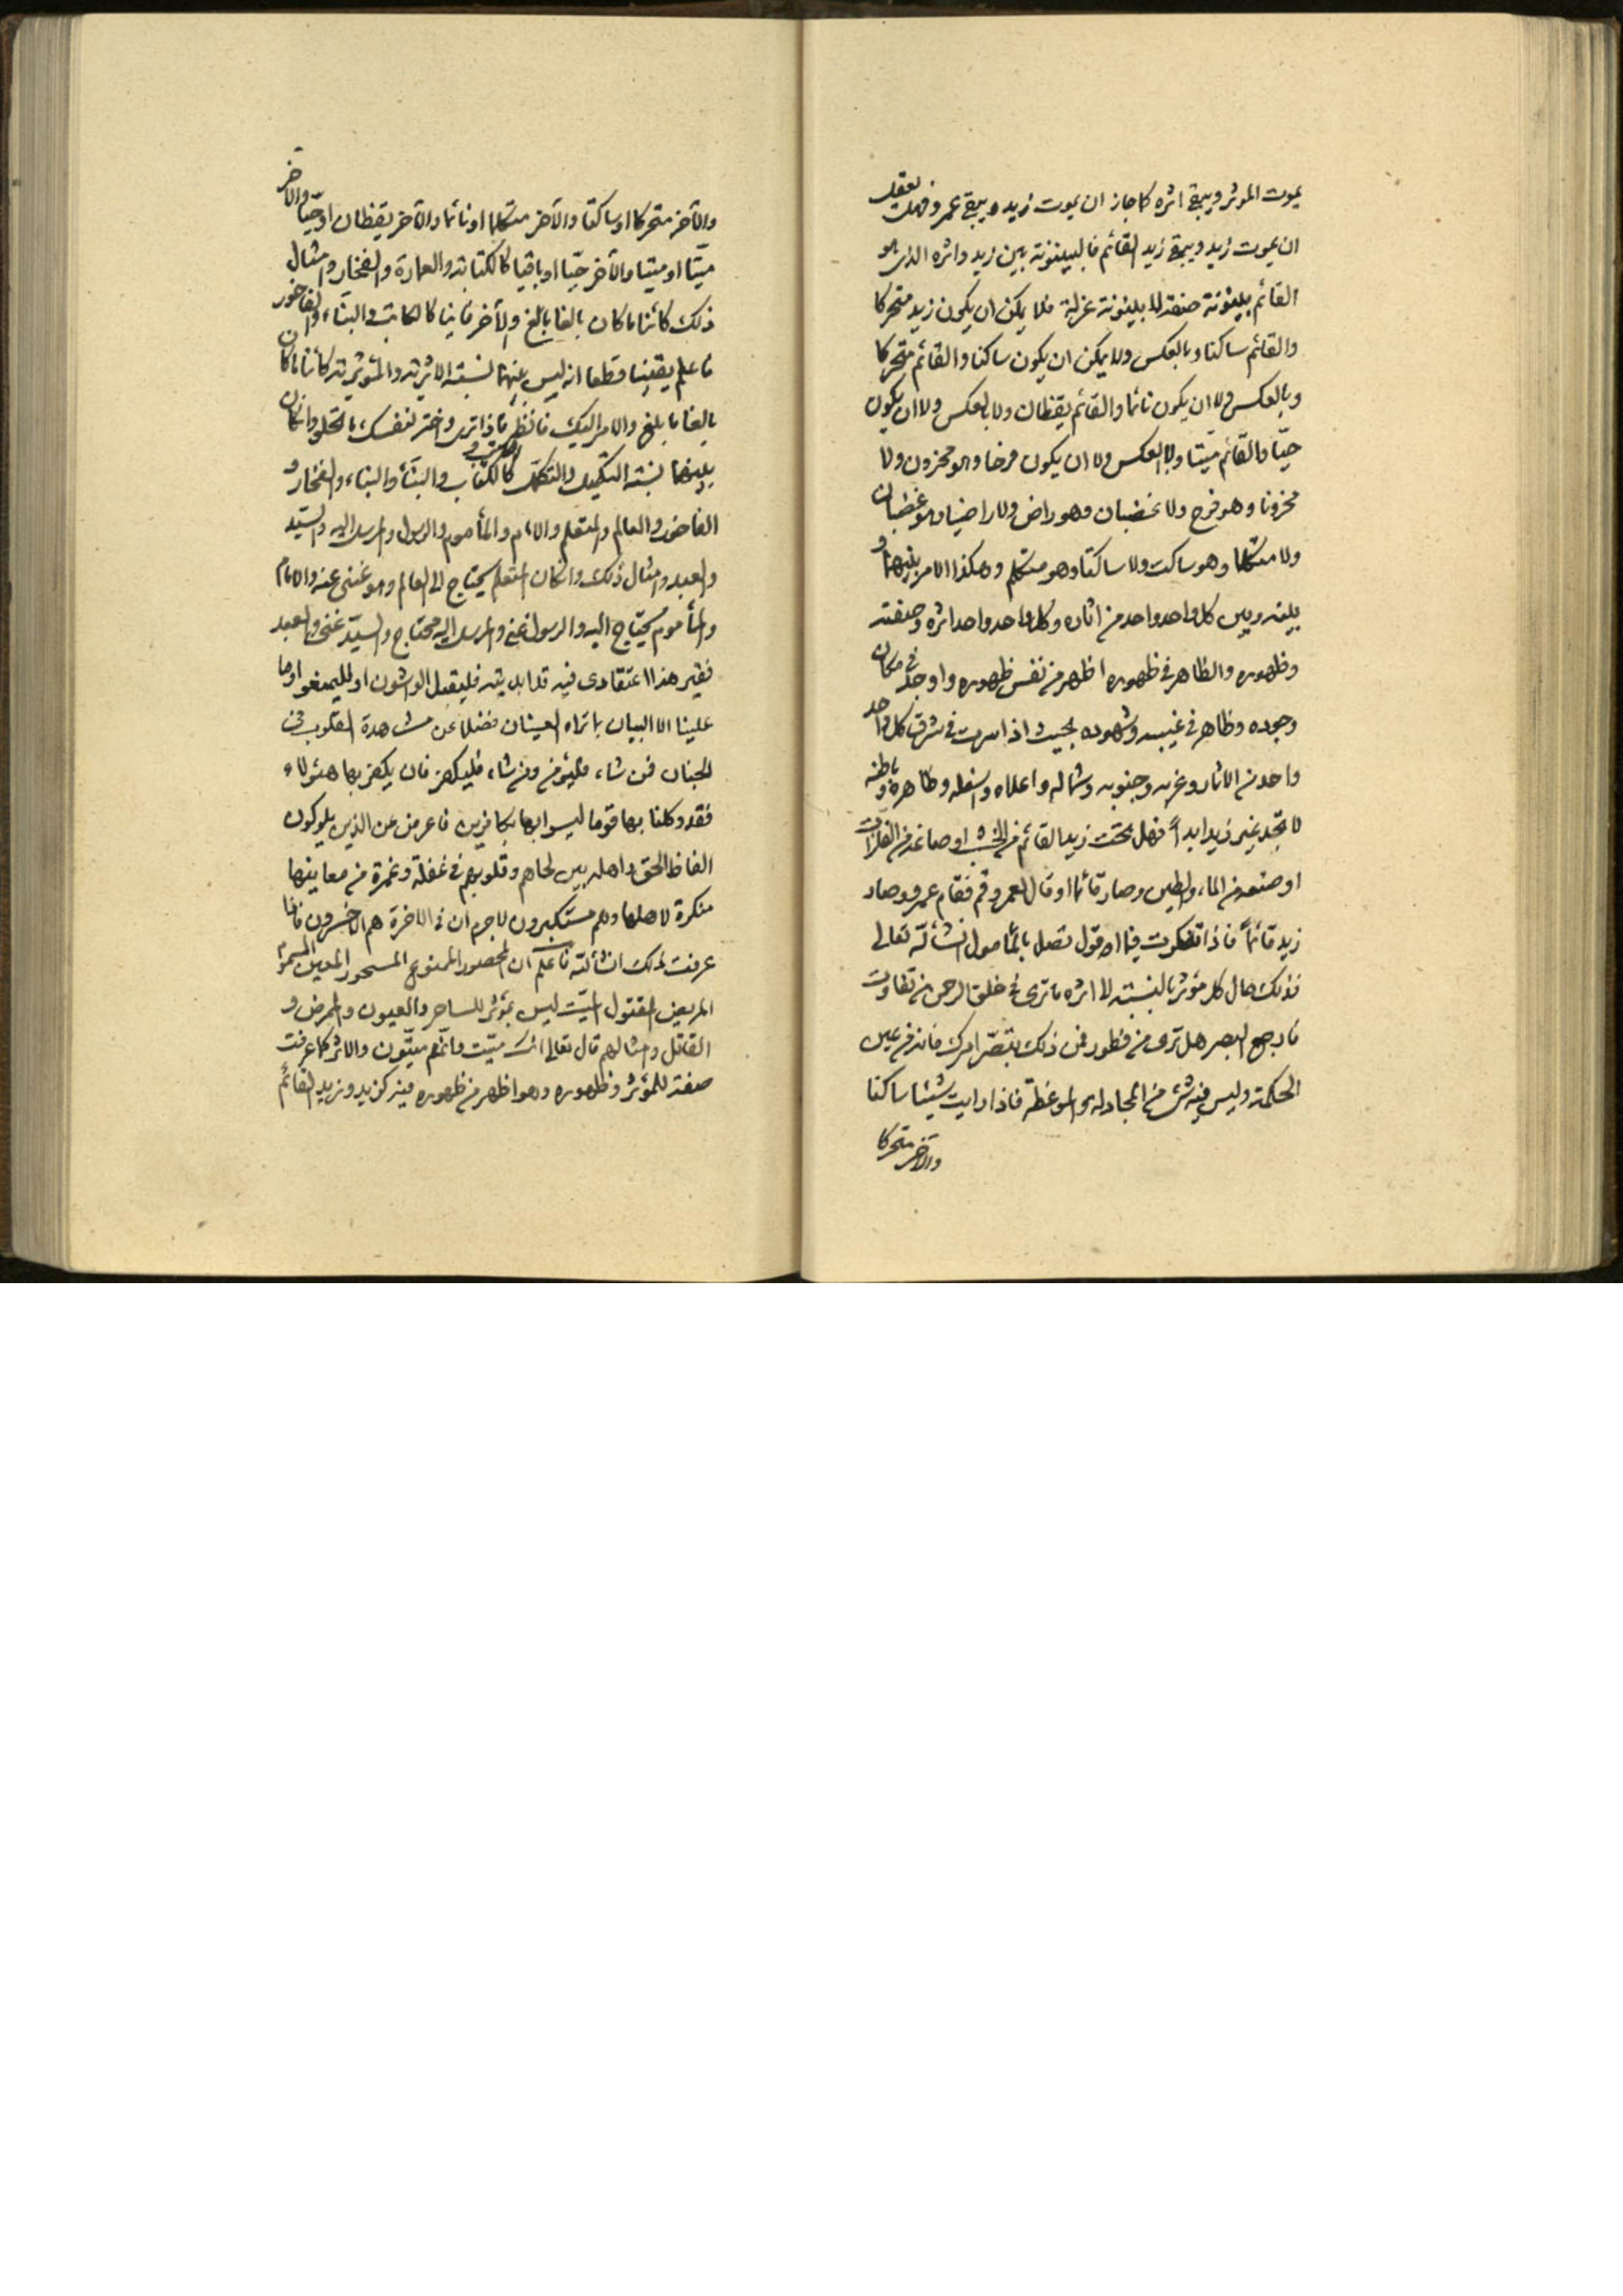 يموت المؤثر ويبقى اثره كما جاز ان يموت زيد ويبقى عمرو فهل يعقل
ان يموت زيد ويبقى زيد القائم فالبينونة بين زيد واثره الذى هو
القائم بينونة صفة لا بينونة عزلة فلا يمكن ان يكون زيد متحركا
والقائم ساكنا وبالعكس ولا يمكن ان يكون ساكنا والقائم متحركا
وبالعكس ولا ان يكون نائما والقائم يقظان ولا بالعكس ولا ان يكون
حيّا والقائم ميّتا ولا بالعكس ولا ان يكون فرحا وهو محزون ولا
محزونا وهو فرح ولا غضبان وهو راض ولا راضيا وهو غضبان
ولا متكلما وهو ساكت ولا ساكتا وهو متكلم وهكذا الامر بينهما و
بينه وبين كل واحد واحد من اثاره وكل واحد واحد اثره وصفته
وظهوره والظاهر فى ظهوره اظهر من نفس ظهوره واوجد فى مكان
وجوده وظاهر فى غيبه وشهوده بحيث اذا سرت فى شرق كل واحد
واحد من الاثار وغربه وجنوبه وشماله واعلاه واسفله وظاهره وباطنه
لا تجد غير زيد ابداً فهل نحت زيد القائم من الخشب او صاغه من الفلزات
او صنعه من الماء والطين وصار قائما او قال لعمرو قم فقام عمرو وصار
زيد قائماً فاذا تفكرت فيما اقول تصل بالمأمول انشأ الله تعالى
فذلك حال كل مؤثر بالنسبة الى اثره ما ترى فى خلق الرحمن من تفاوت
فارجع البصر هل ترى من فطور فمن ذلك تبصّر امرك فانه من عين
الحكمة وليس فيه شئ من المجادلة والموعظة فاذا رايت شيئا ساكنا
والآخر متحركا
والآخر متحركا او ساكتا والآخر متكلما او نائما والآخر يقظان او حيّا والآخر
ميّتا او ميتا والآخر حيّا او باقيا كالكتابة والعمارة والفخار وامثال
ذلك كائنا ما كان بالغا ما بلغ والآخر فانيا كالكاتب والبنّاء والفاخور
فاعلم يقينا وقطعا انه ليس بينهما نسبة الاثرية والمؤثرية كائنا ما كان
بالغا ما بلغ والامر اليك فانظر ماذا ترى واختر لنفسك ما تحلو وان كان
بينهما نسبة التكميل والتكمل كالكاتب والبنّاء والبناء والفخار و
الفاخور والعالم والمتعلم والامام والمأموم والرسول والمرسل اليه والسيّد
والعبد وامثال ذلك وان كان المتعلم يحتاج الى العالم وهو غنى عنه والامام
والمأموم يحتاج اليه والرسول غنى والمرسل اليه محتاج والسيّد غنى والعبد
فقير هذا اعتقادى فيه قد ابديته فليقبل الواشون او فليمنعوا وما
علينا الا البيان بما تراه العينان فضلا عن مشاهدة القلوب فى
الجنان فمن شاء فليؤمن ومن شاء فليكفر فان يكفر بها هؤلاء
فقد وكلنا بها قوما ليسوا بها بكافرين فاعرض عن الذين يلوكون
الفاظ الحق واهله بين لحاهم وقلوبهم فى غفلة وغمرة من معاينها
منكرة لاهلها وهم مستكبرون لا جرم ان فى الاخرة هم الاخسرون فاذا
عرفت ذلك انشأ الله فاعلم ان المحصور الممنوع المسحور المعين المسموم
المريض المقتول الميّت ليس بمؤثر للساحر والعيون والممرض و
القاتل وامثالهم قال تعالى انك ميّت وانّهم ميّتون والاثر كما عرفت
صفة للمؤثر وظهوره وهو اظهر من ظهوره فيه كزيد وزيد القائم